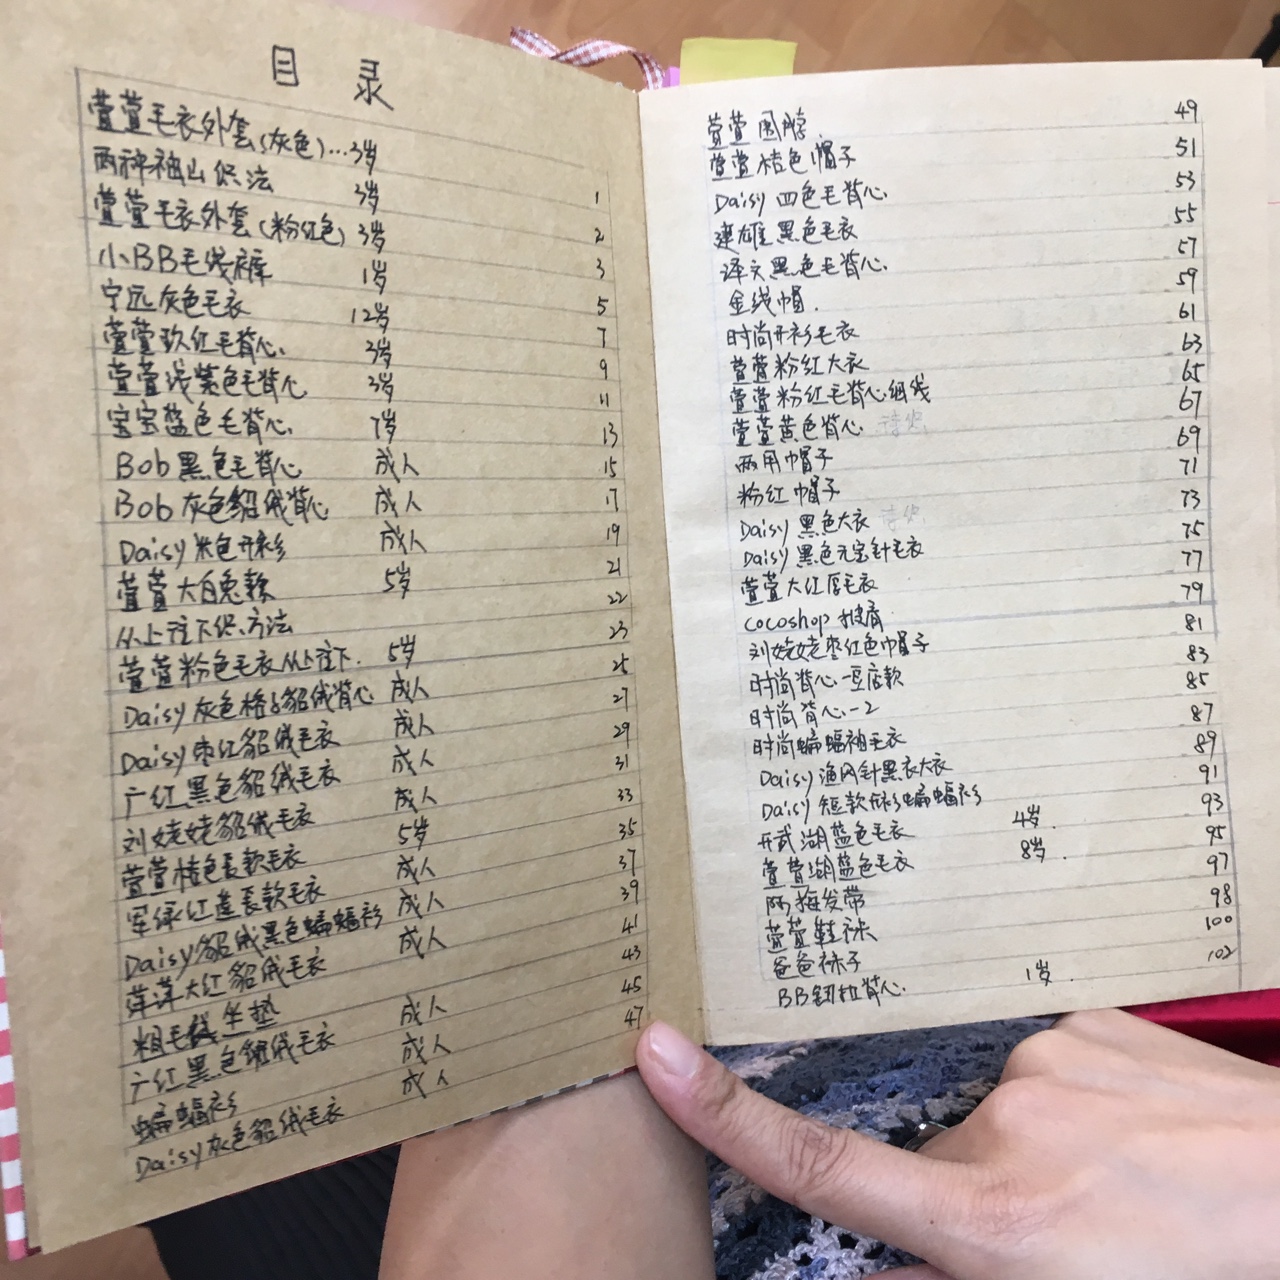 目 录
萱萱毛衣外套(灰色)…3岁 1
两种袖山织法 3岁 2
萱萱毛衣外套(粉红色) 3岁 3
小BB毛线裤 1岁 5
宁远灰色毛衣 12岁 7
萱萱玖红毛背心 3岁 9
萱萱浅紫色毛背心 3岁 11
宝宝蓝色毛背心 7岁 13
Bob黑色毛背心 成人 15
Bob灰色貂绒背心 成人 17
Daisy米色开衫 成人 19
萱萱大白兔款 5岁 21
从上往下织方法 22
萱萱粉色毛衣从上往下. 5岁 23
Daisy灰色格子貂绒背心 成人 25
Daisy枣红貂绒毛衣 成人 27
广红黑色貂绒毛衣 成人 29
刘姥姥貂绒毛衣 成人 31
萱萱桔色长款毛衣 5岁 33
军绿红莲长款毛衣 成人 35
Daisy貂绒黑色蝙蝠衫 成人 37
萍萍大红貂绒毛衣 成人 39
粗毛线坐垫 41
广红黑色貂绒毛衣 成人 43
蝙蝠衫 成人 45
Daisy灰色貂绒毛衣 成人 47
萱萱围脖. 49
萱萱桔色帽子 51
Daisy四色毛背心 53
建雄黑色毛衣 55
译文黑色毛背心 57
金线帽. 59
时尚开衫毛衣 61
萱萱粉红大衣 63
萱萱粉红毛背心粗线 65
萱萱黄色背心 待织 67
两用帽子 69
粉红帽子 71
Daisy黑色大衣 待织 73
Daisy黑色元宝针毛衣 75
萱萱大红厚毛衣 77
cocoshop披肩 79
刘姥姥枣红色帽子 81
时尚背心-豆店款 83
时尚背心-2 85
时尚蝙蝠袖毛衣 87
Daisy渔网针黑衣大衣 89
Daisy短款开衫蝙蝠衫 91
开武湖蓝色毛衣 4岁. 93
萱萱湖蓝色毛衣 8岁. 95
阿梅发带 97
萱萱鞋袜 98
爸爸袜子 100
BB钮拉背心. 1岁. 102